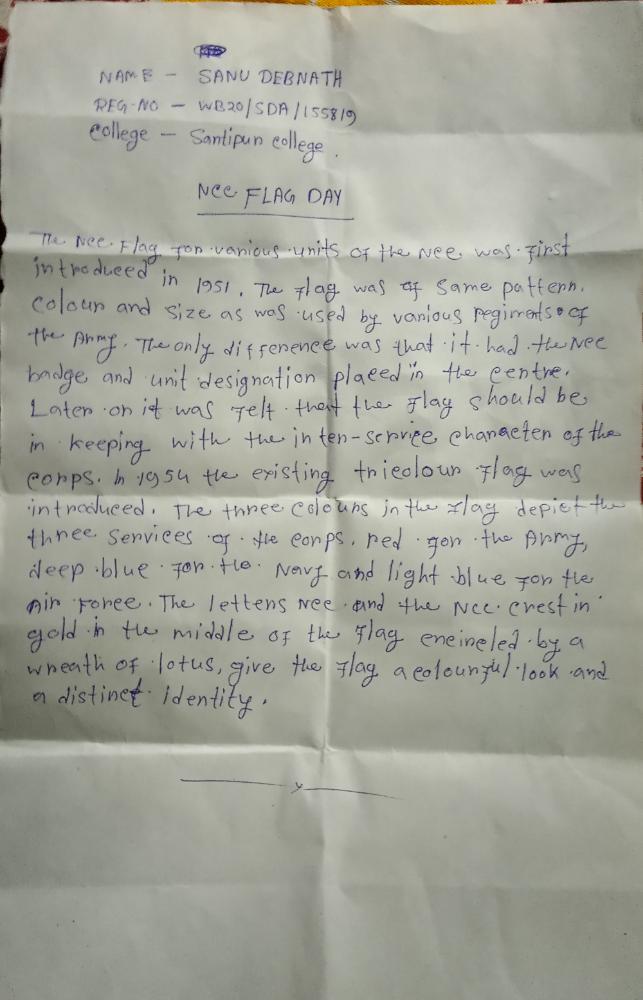 NAME - SANU DEBNATH
REG-NO - WB20/SDA/155819
College - Santipur college.
NCC FLAG DAY
The NCC Flag for various units of the NCC was first
introduced in 1951. The flag was of same pattern.
colour and size as was used by various regiments of
the Army. The only difference was that it had the NCC
badge and unit designation placed in the centre.
Later on it was felt that the flag should be
in keeping with the inter-service character of the
corps. In 1954 the existing tricolour flag was
introduced. The three colours in the flag depict the
three services of the corps. red for the Army,
deep blue for the Navy and light blue for the
Air Force. The letters NCC and the NCC crest in
gold in the middle of the flag encircled by a
wreath of lotus, give the flag a colourful look and
a distinct identity.